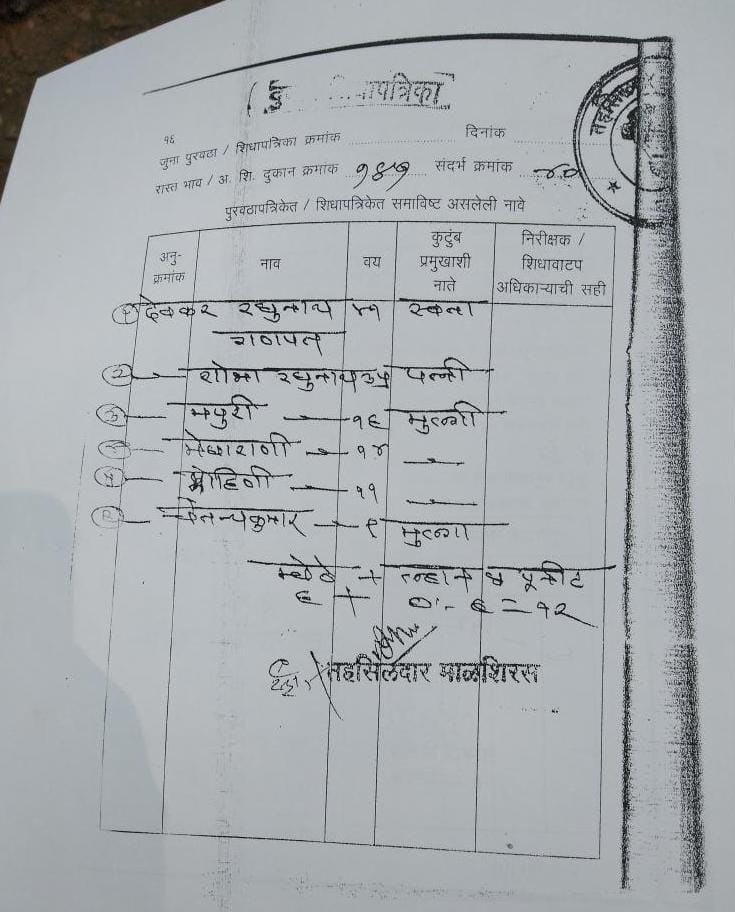 शिधापत्रिका
१६
जुना पुरवठा / शिधापत्रिका क्रमांक दिनांक
रास्त भाव / अ. शि. दुकान क्रमांक १४५ संदर्भ क्रमांक ४०
पुरवठापत्रिकेत / शिधापत्रिकेत समाविष्ट असलेली नावे
अनु-क्रमांक नाव वय कुटुंब प्रमुखाशी नाते निरीक्षक / शिधावाटप अधिकाऱ्याची सही
१ देवकर रघुनाथ स्वतः
गणपत
२ शोभा रघुनाथ ३५ पत्नी
३ मयुरी १६ मुलगी
४ मेघाराणी १४
५ मोहिणी ११
६ चैतन्यकुमार ९ मुलगा
मोठे + लहान युनीट
६ + ० - ६ = १२
तहसिलदार माळशिरस